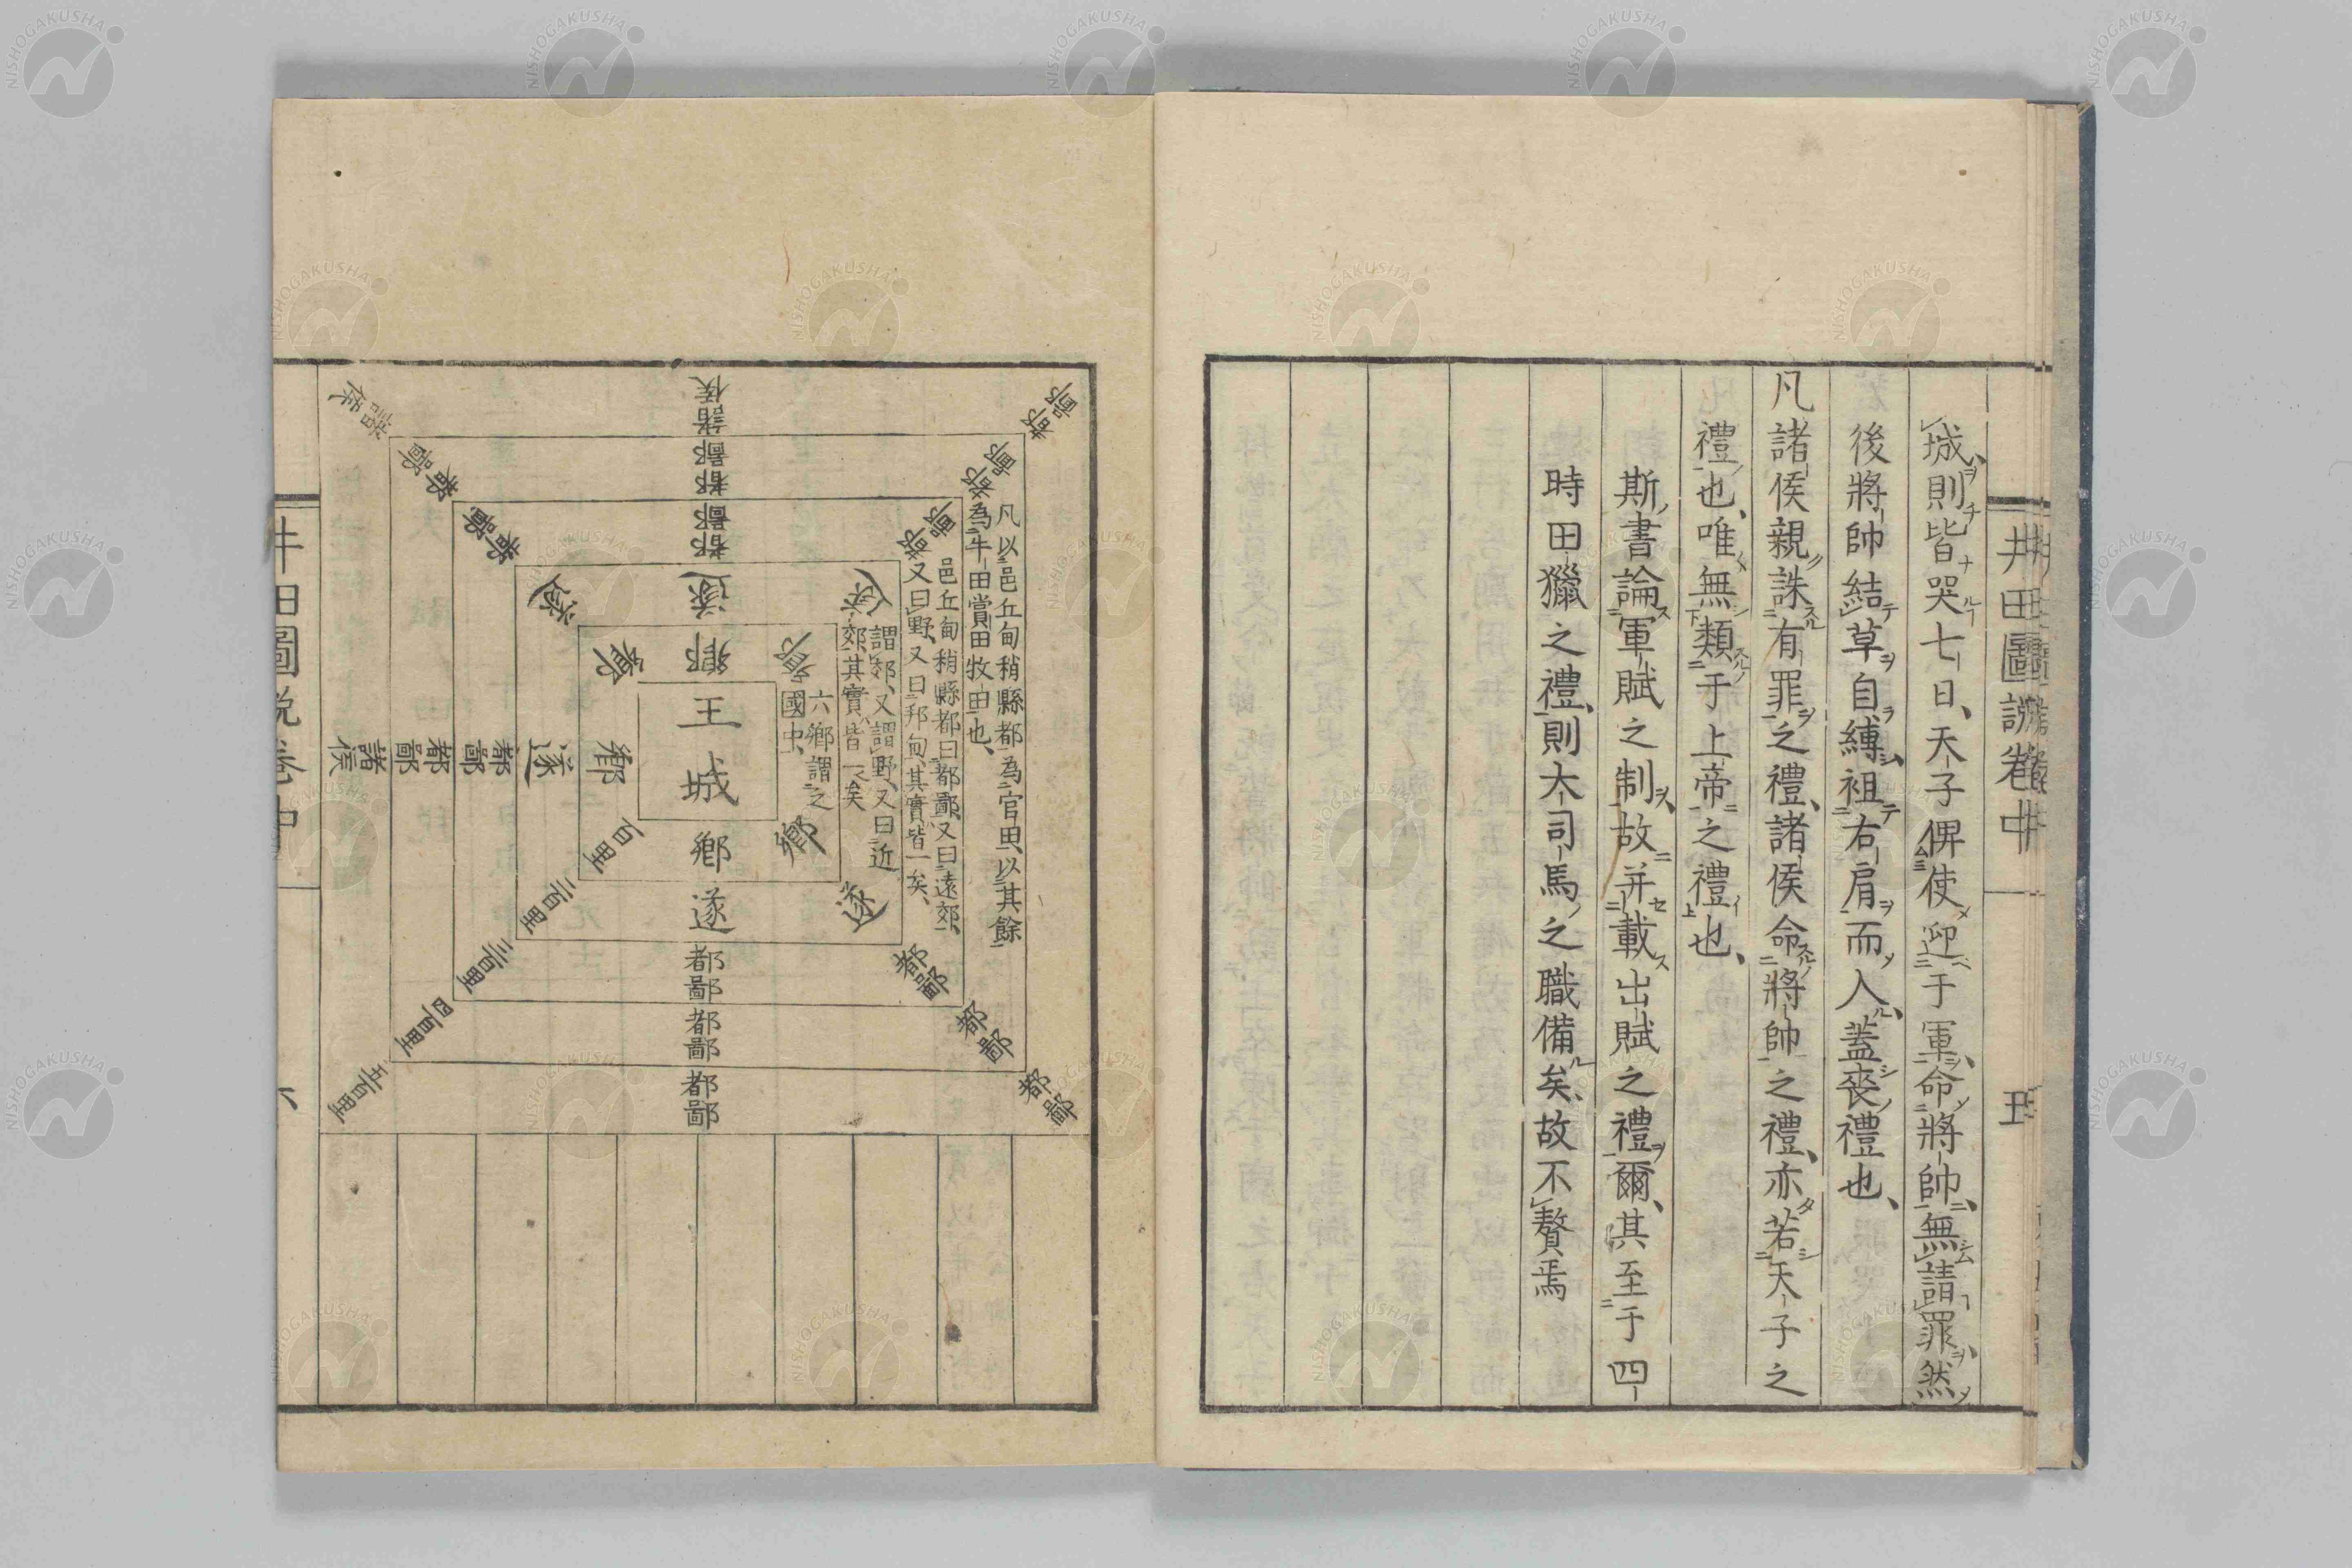 井田圖說卷中
五
城、則皆哭七日、天子俾使迎于軍、命將帥、無請罪、然
後將帥結草自縛、袒右肩而入、蓋喪禮也、
凡諸侯親誅有罪之禮、諸侯命將帥之禮、亦若天子之
禮也、唯無類于上帝之禮也、
斯書論軍賦之制、故并載出賦之禮爾、其至于四
時田獵之禮、則大司馬之職備矣、故不贅焉
凡以邑丘甸稍縣都、為官田、以其餘
為牛田賞田牧田也、
邑丘甸稍縣都曰都鄙、又曰遠郊、
又曰野、又曰邦甸、其實皆一矣、
謂郊、又謂野、又曰近
郊、其實皆一矣
六鄉謂之
國中、
王城
鄉
鄉
鄉
鄉
鄉
鄉
遂
遂
遂
遂
遂
遂
都鄙
都鄙
都鄙
都鄙
都鄙
都鄙
都鄙
都鄙
都鄙
都鄙
都鄙
都鄙
都鄙
都鄙
諸侯
諸侯
諸侯
百里
二百里
三百里
四百里
五百里
井田圖說卷中
六
NISHOGAKUSHA